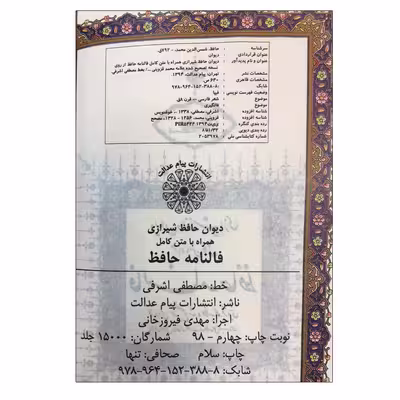 سرشناسه : حافظ، شمس‌الدین محمد، - ۷۹۲ق.
عنوان قراردادی : دیوان
عنوان و نام پدیدآور : دیوان حافظ شیرازی همراه با متن کامل فالنامه حافظ از روی
نسخه تصحیح شده علامه محمد قزوینی ... / بخط مصطفی اشرفی.
مشخصات نشر : تهران: پیام عدالت، ۱۳۹۴.
مشخصات ظاهری : ۶۳۰ ص.
شابک : ۹۷۸-۹۶۴-۱۵۲-۳۸۸-۸
وضعیت فهرست نویسی : فیپا
موضوع : شعر فارسی -- قرن ۸ق.
موضوع : فالگیری
شناسه افزوده : اشرفی، مصطفی، ۱۳۳۸ - ، خوشنویس
شناسه افزوده : قزوینی، محمد، ۱۲۵۶ - ۱۳۲۸، مصحح
رده بندی کنگره
رده بندی دیویی : ۸فا۱/۳۲
شماره کتابشناسی ملی
انتشارات پیام عدالت
دیوان حافظ شیرازی
همراه با متن کامل
فالنامه حافظ
خط: مصطفی اشرفی
ناشر: انتشارات پیام عدالت
اجرا: مهدی فیروزخانی
نوبت چاپ: چهارم - ۹۸ شمارگان: ۱۵۰۰۰ جلد
چاپ: سلام صحافی: تنها
شابک: ۸-۳۸۸-۱۵۲-۹۶۴-۹۷۸